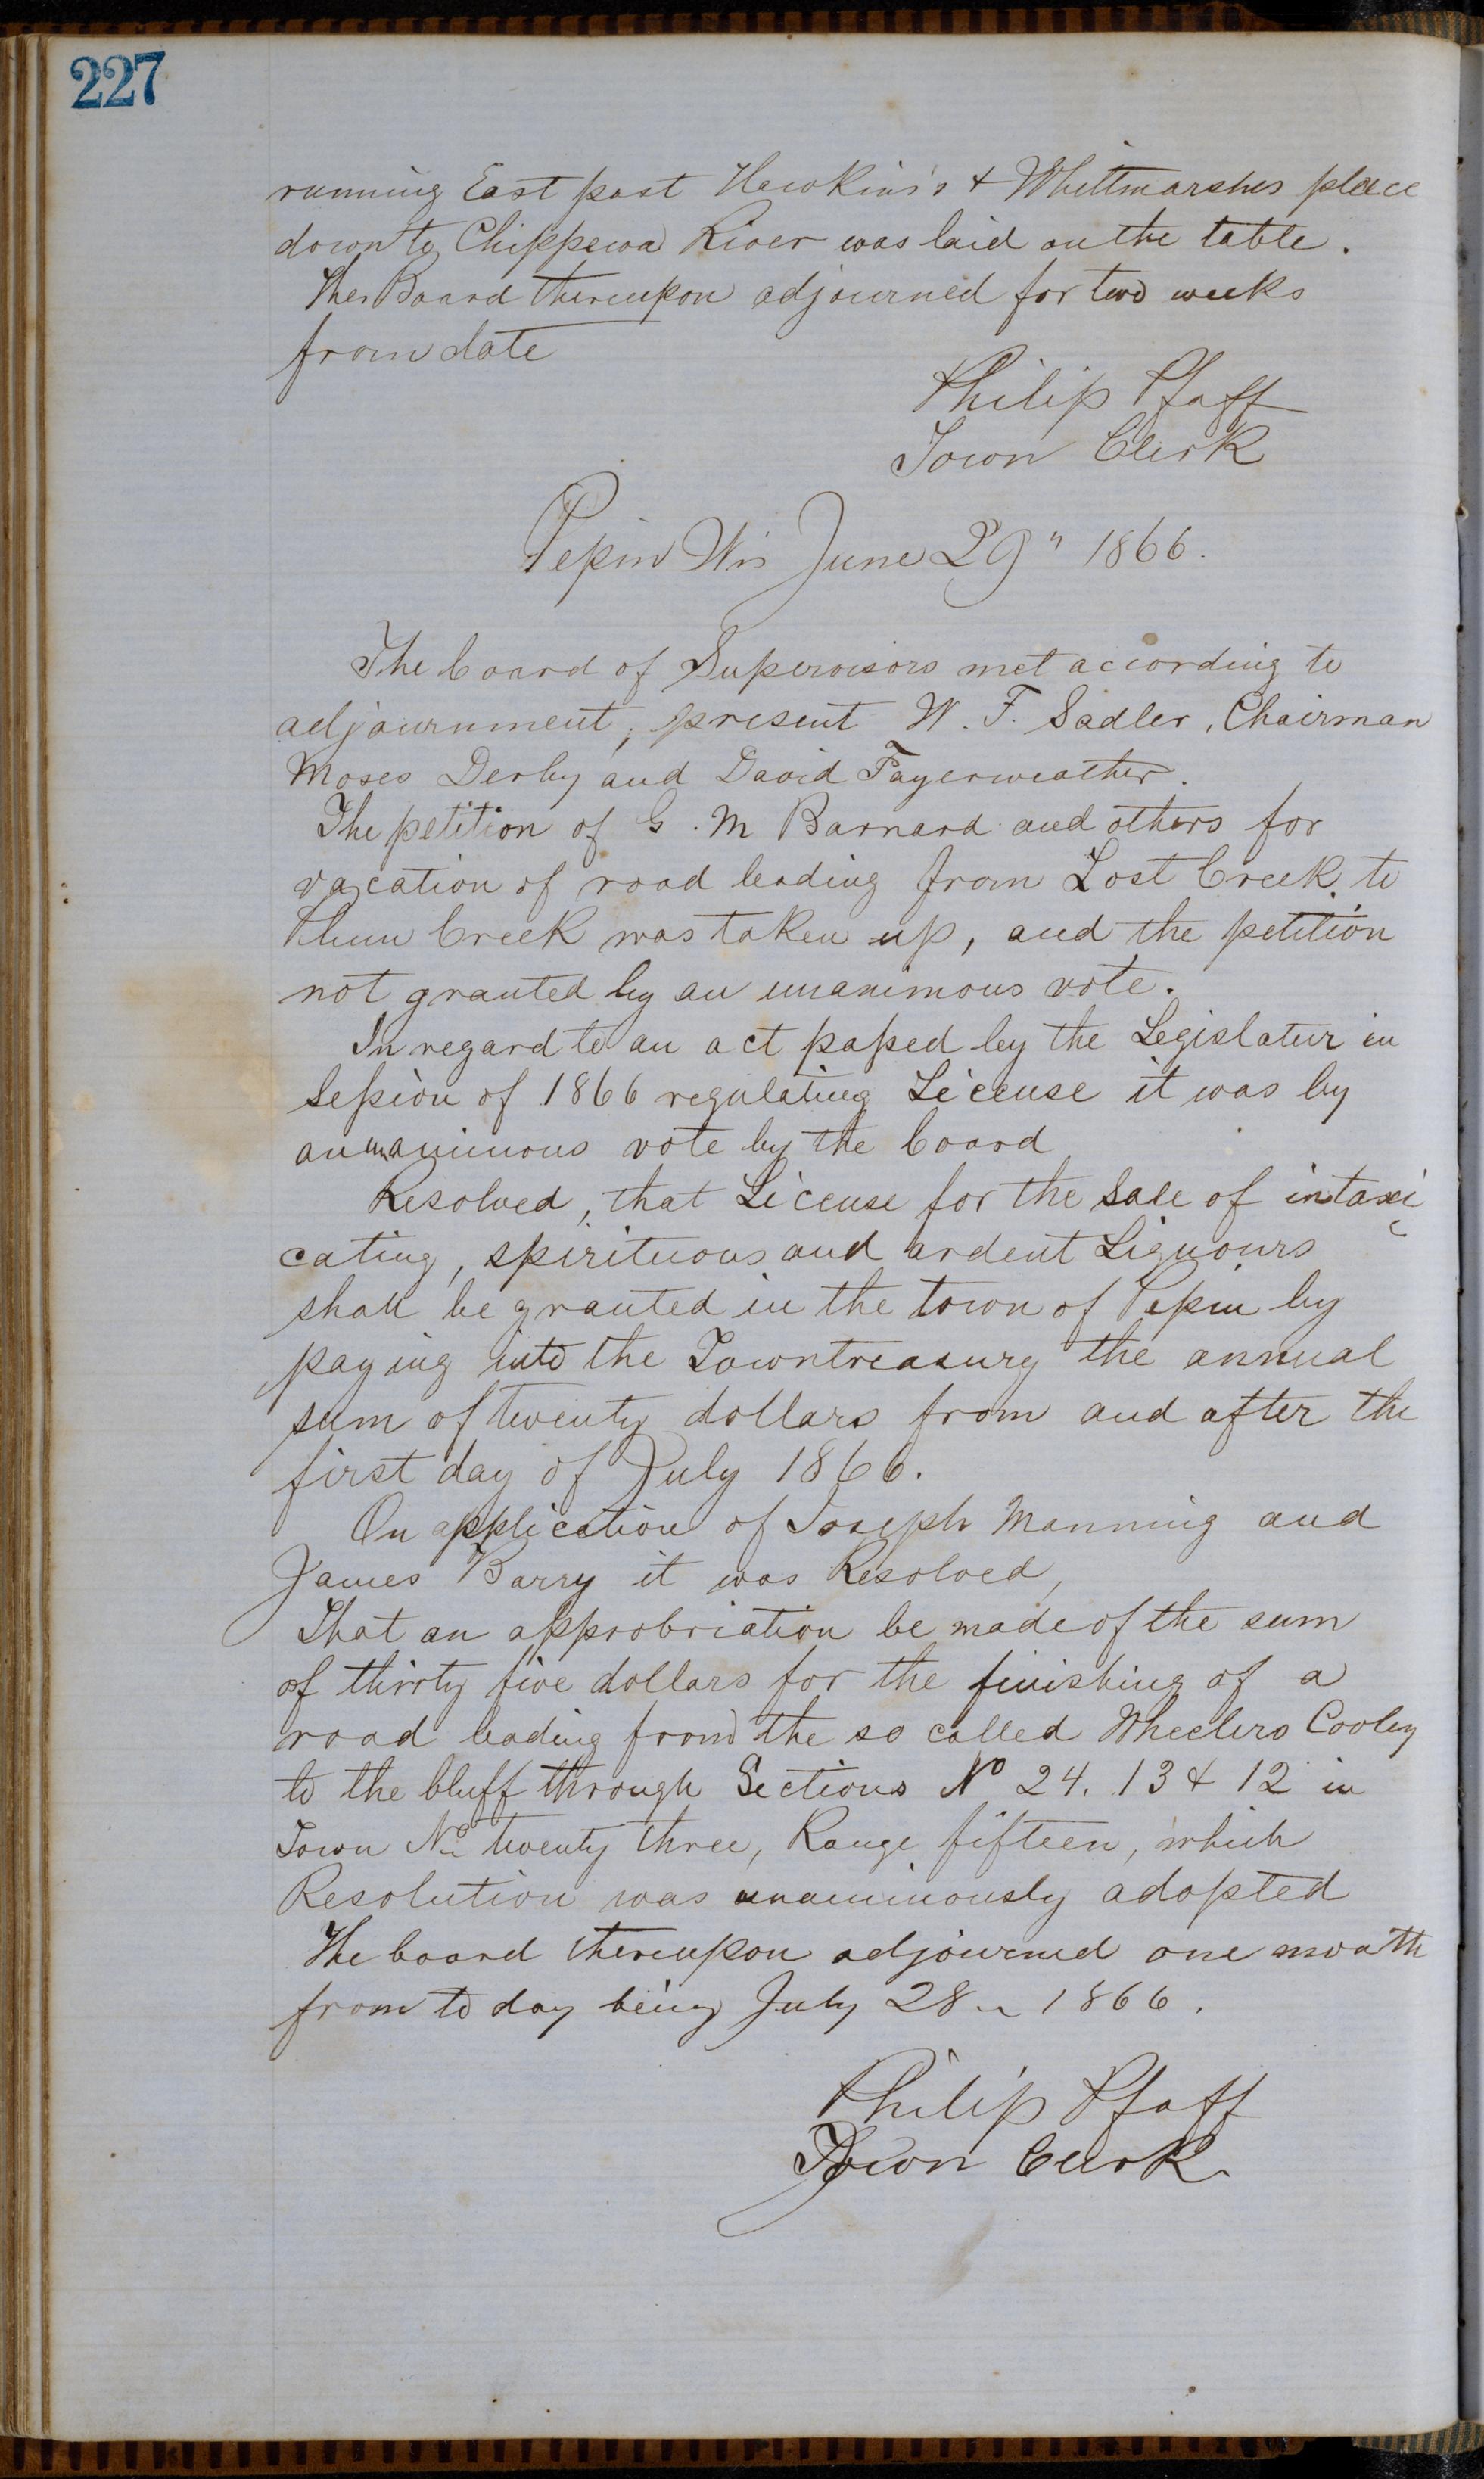 227
running East past Hawkins's & Whittmarshes place
down to Chippewa River was laid on the table.
The Board thereupon adjourned for two weeks
from date
Philip Pfaff
Town Clerk
Pepin Wis June 29" 1866.
The board of Supervisors met according to
adjournment, present W. F. Sadler, Chairman
Moses Derby and David Fayerweather.
The petition of G. M Barnard and others for
vacation of road leading from Lost Creek to
Plum Creek was taken up, and the petition
not granted by an unanimous vote.
In regard to an act passed by the Legislatur in
Session of 1866 regulating License it was by
an unanimous vote by the board
Resolved, that License for the Sale of intoxi
cating, spirituous and ardent Liquours
shall be granted in the town of Pepin by
paying into the Towntreasury the annual
sum of twenty dollars from and after the
first day of July 1866.
On application of Joseph Manning and
James Barry it was Resolved,
That an approbriation be made of the sum
of thirty five dollars for the finishing of a
road leading from the so called Wheelers Cooley
to the bluff through Sections No 24. 13 & 12 in
Town No twenty three, Range fifteen, which
Resolution was unanimously adopted
The board thereupon adjourned one month
from to day being July 28" 1866.
Philip Pfaff
Town Clerk